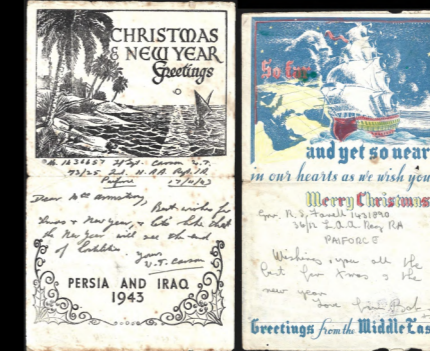 CHRISTMAS
& NEW YEAR
Greetings
No 1636657 Carson V.T.
H.A.A. Regt. R.A.
Paiforce 17/11/43
Dear Armstrong,
Best wishes for
Xmas & New Year, & let's hope that
the New Year will see the end
of
Yours
V.T. Carson
PERSIA AND IRAQ
1943
So far
and yet so near
in our hearts as we wish you
Merry Christmas
Gnr. R.S. 1431890
L.A.A. Bty, RA
PAIFORCE
Wishing you all the
best for Xmas & the
new year
Greetings from the Middle Eas